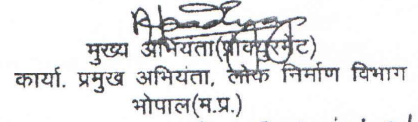 मुख्य अभियंता(प्रोक्यूरमेंट)
कार्या. प्रमुख अभियंता, लोक निर्माण विभाग
भोपाल(म.प्र.)